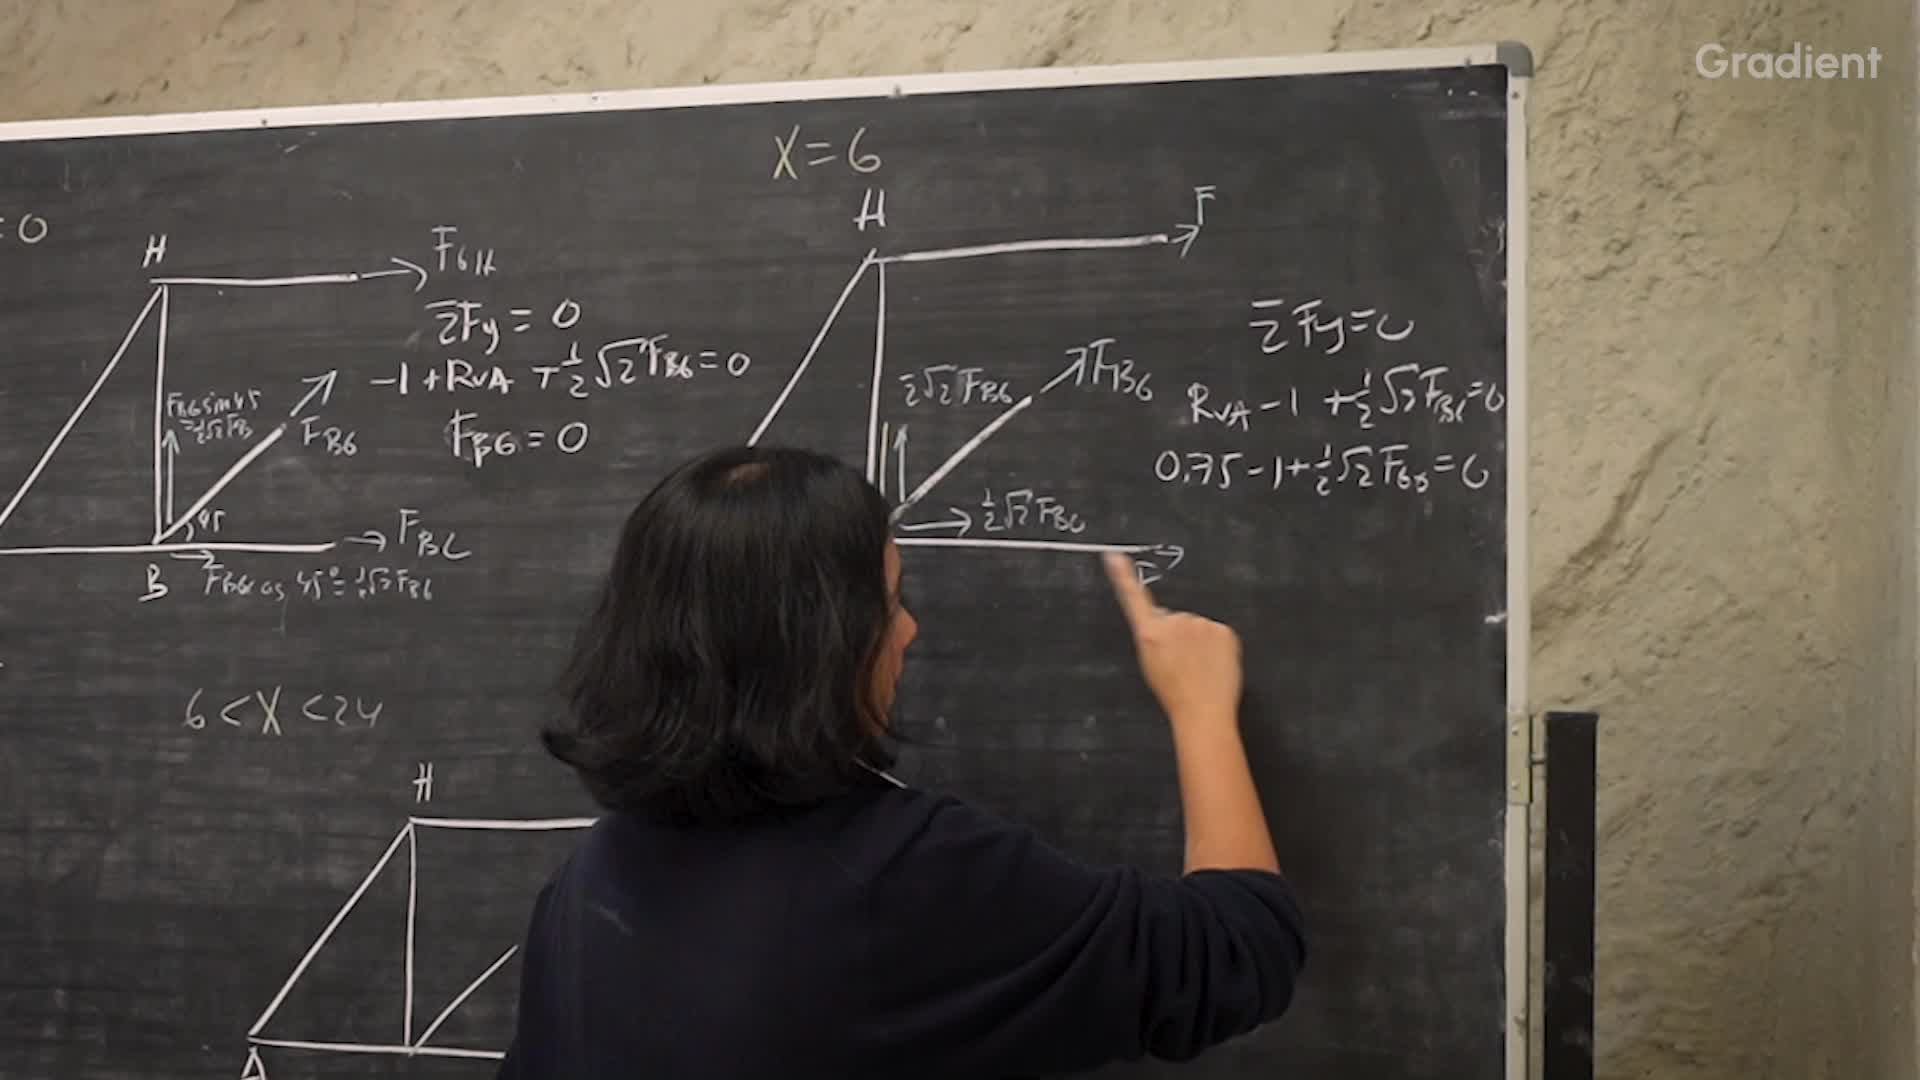 Gradient
= 0
H
F GH
ΣFy = 0
-1 + RvA + 1/2 √2 FBG = 0
FBG = 0
FBG sin 45
= 1/2 √2 FBG
FBG
45
FBC
B
FBG cos 45° = 1/2 √2 FBG
X = 6
H
F
FBG
1/2 √2 FBG
ΣFy = 0
RvA - 1 + 1/2 √2 FBG = 0
0,75 - 1 + 1/2 √2 FBG = 0
1/2 √2 FBG
F
6 < X < 24
H
A